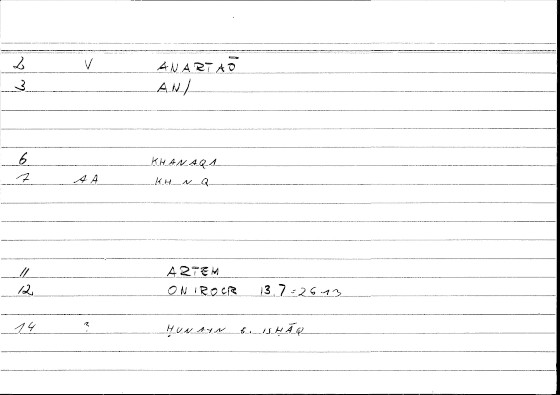 2 V ANARTAŌ
3 AN/
6 KHANAQA
7 AA KH N Q
11 ARTEM
12 ONIROCR 13.7=26 13
14 ? ḤUNAYN b. ISḤĀQ